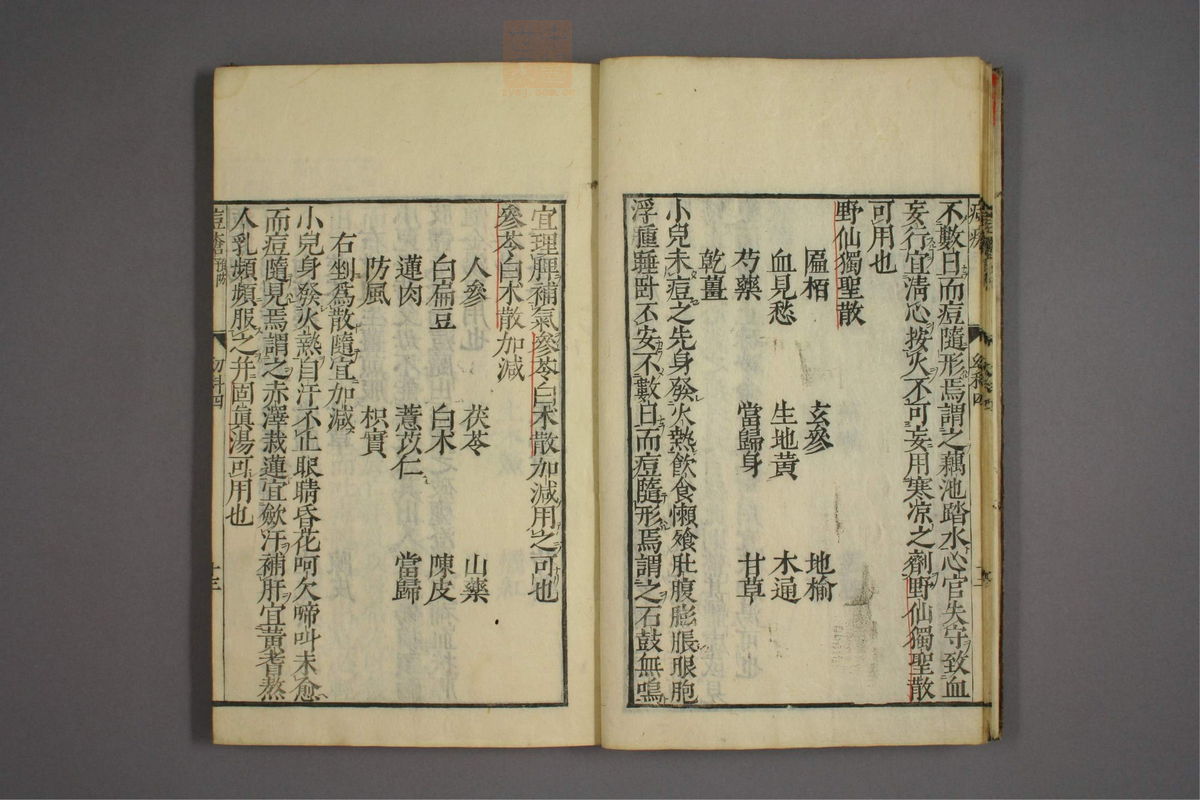 不數日而痘隨形焉謂之藕池踏水心官失守致血
妄行宜淸心按火不可妄用寒凉之劑野仙獨聖散
可用也
野仙獨聖散
匾栢 玄參 地榆
血見愁 生地黃 木通
芍藥 當歸身 甘草
乾薑
小兒未痘之先身發火熱飮食懶飱肚腹膨脹眼胞
浮腫睡卧不安不數日而痘隨形焉謂之石鼓無鳴
宜理脾補氣參苓白术散加減用之可也
參苓白术散加減
人參 茯苓 山藥
白扁豆 白术 陳皮
蓮肉 薏苡仁 當歸
防風 枳實
右剉爲散隨宜加減
小兒身發火熱自汗不止眼睛昏花呵欠啼呌未愈
而痘隨見焉謂之赤澤栽蓮宜歛汗補肝宜黃耆熬
人乳頻頻服之幷固眞湯可用也
幼科四